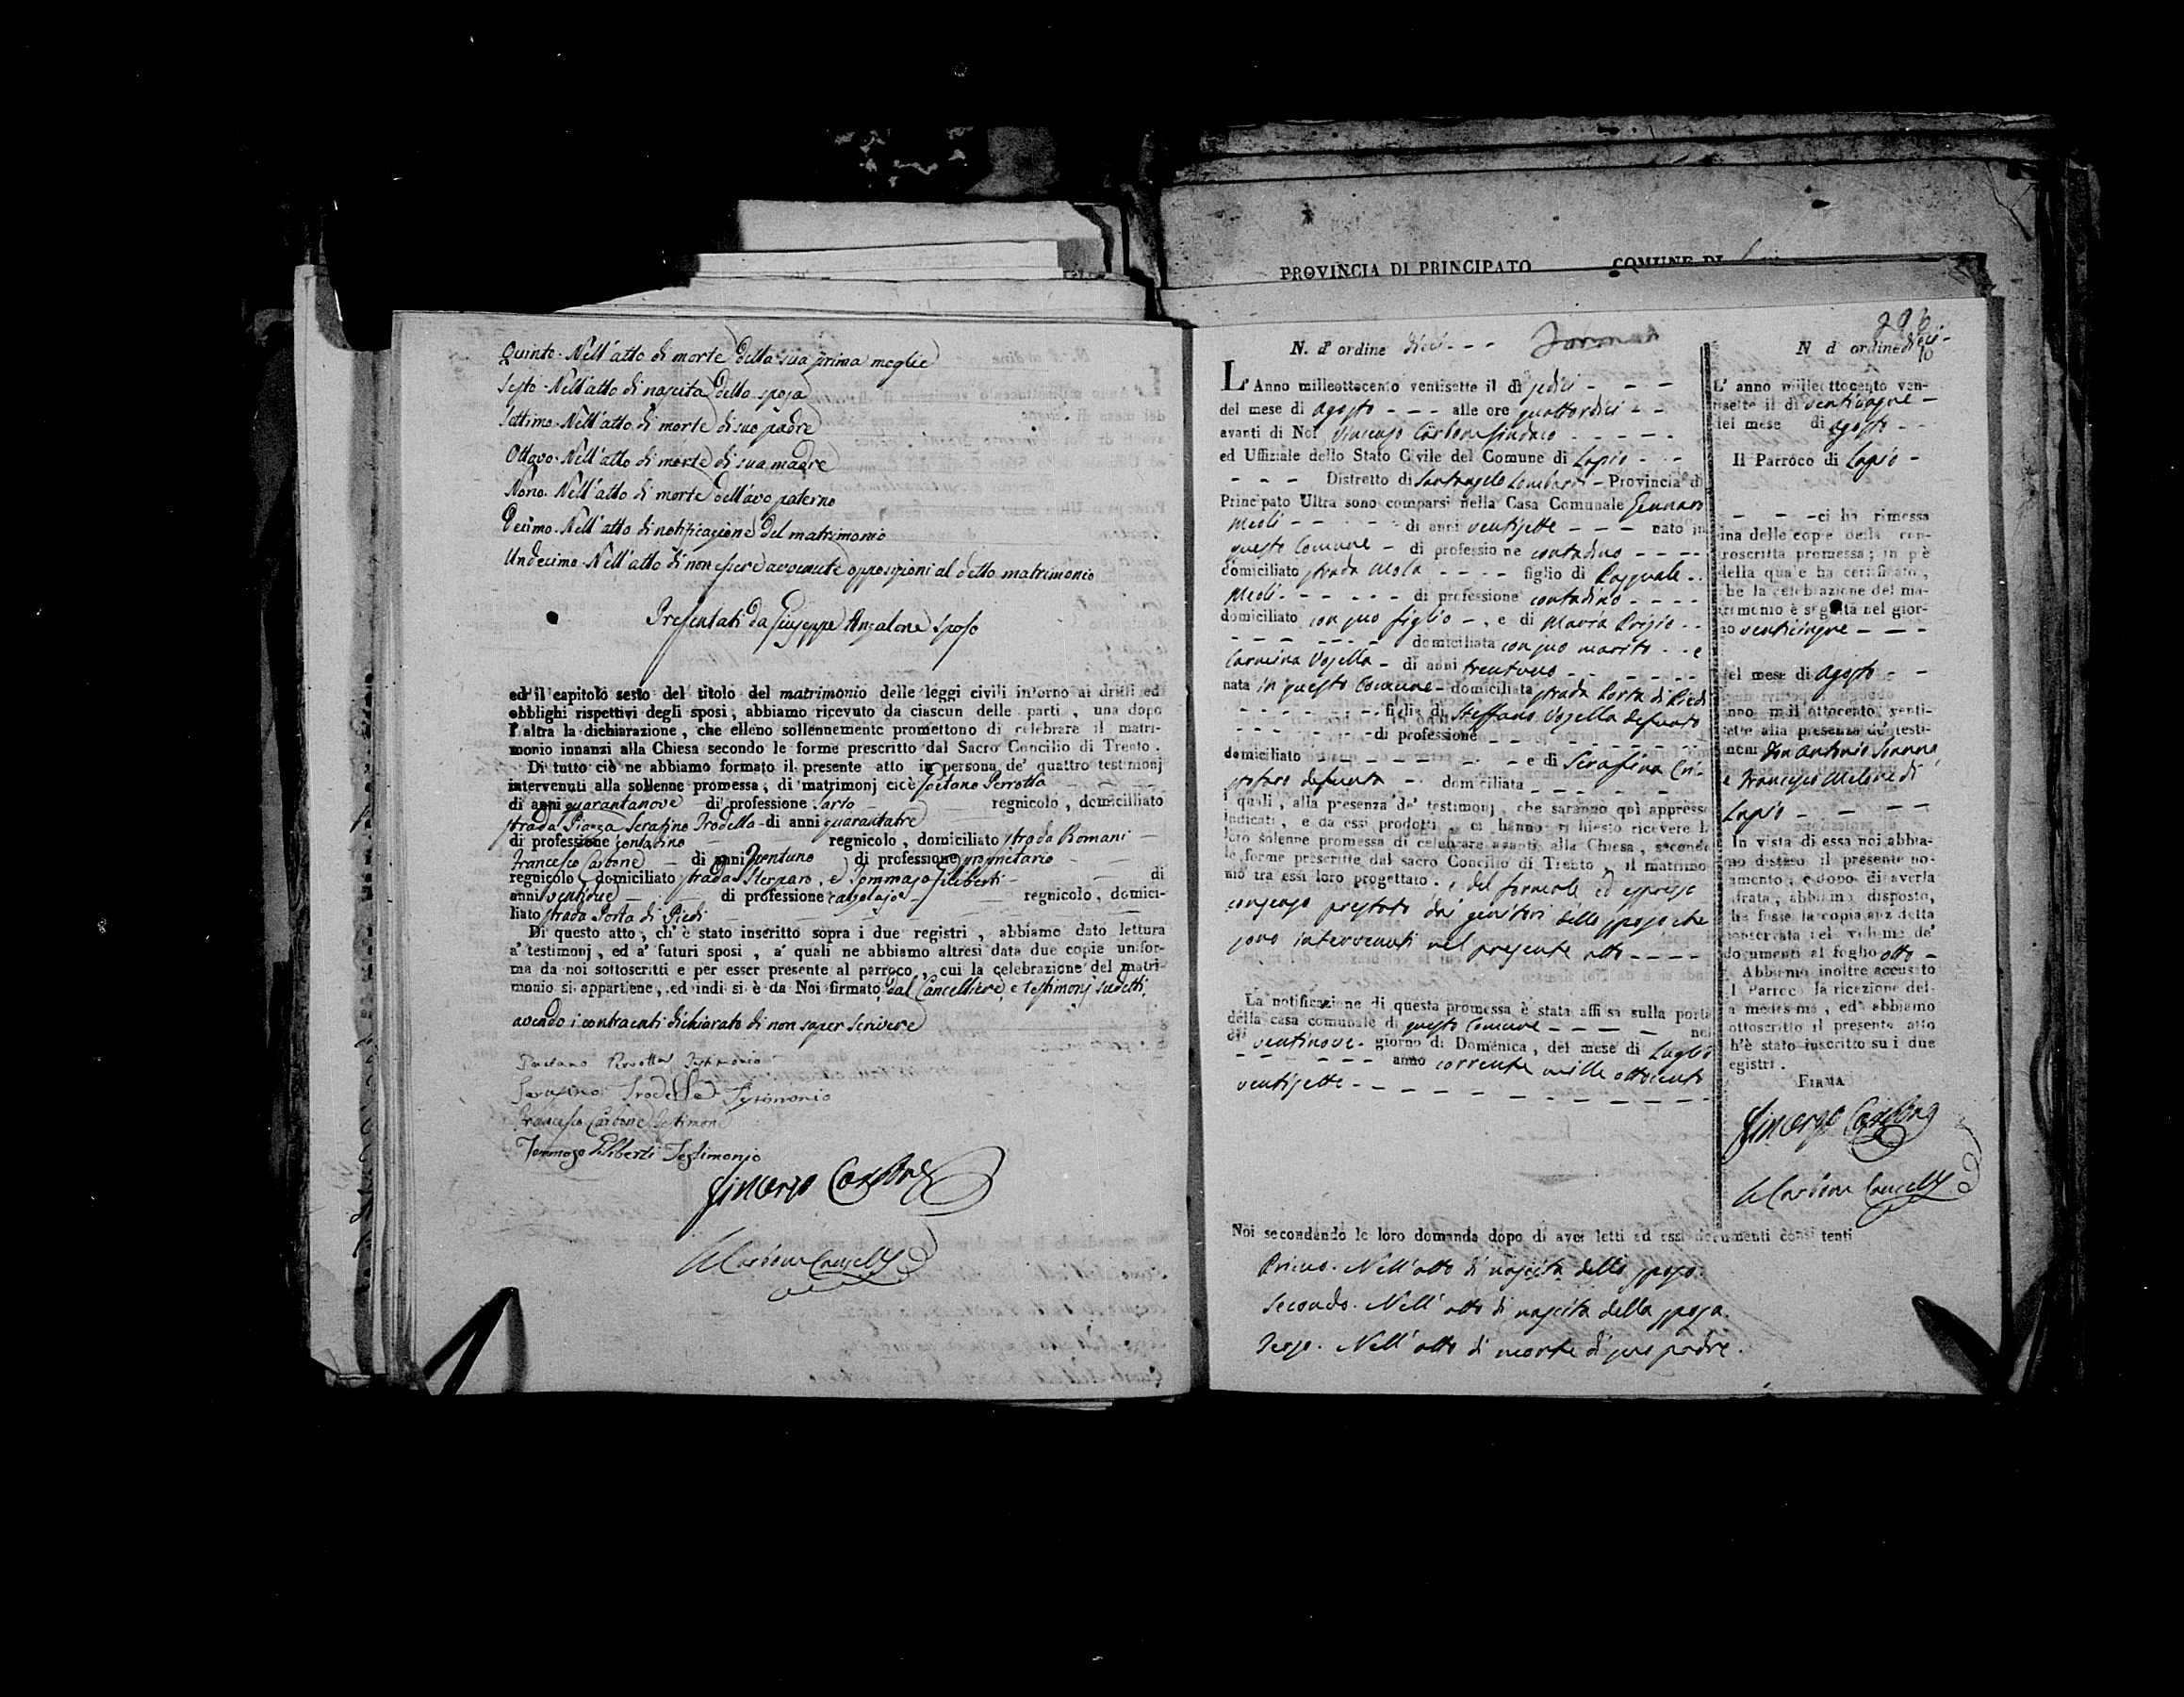 Quinto. Nell'atto di morte della sua prima moglie
Sesto. Nell'atto di nascita della sposa
Settimo. Nell'atto di morte di suo padre
Ottavo. Nell'atto di morte di sua madre
Nono. Nell'atto di morte dell'avo paterno
Decimo. Nell'atto di notificazione del matrimonio
Undecimo. Nell'atto di non essere avvenute opposizioni al detto matrimonio
Presentati da Giuseppe Anzalone sposo
ed il capitolo sesto del titolo del matrimonio delle leggi civili intorno ai dritti ed
obblighi rispettivi degli sposi, abbiamo ricevuto da ciascun delle parti, una dopo
l'altra la dichiarazione, che elleno sollennemente promettono di celebrare il matri-
monio innanzi alla Chiesa secondo le forme prescritto dal Sacro Concilio di Trento.
Di tutto ciò ne abbiamo formato il presente atto in persona de' quattro testimonj
intervenuti alla sollenne promessa, di matrimonj cioè Gaetano Perrotta
di anni quarantanove - di professione sarto - regnicolo, domicilliato
strada Piazza Serafino Trodella - di anni quarantatre
di professione contadino - regnicolo, domiciliato strada Romani -
Francesco Carbone - di anni ventuno di professione proprietario -
regnicolo domiciliato strada Sterparo, e Tommaso Filiberti - di
anni ventidue - di professione calzolajo - regnicolo, domici-
liato strada Porta di Piedi
Di questo atto, ch'è stato inscritto sopra i due registri, abbiamo dato lettura
a' testimonj, ed a' futuri sposi, a' quali ne abbiamo altresì data due copie unifor-
ma da noi sottoscritti e per esser presente al parroco, cui la celebrazione del matri-
monio si appartiene, ed indi si è da Noi firmato, dal Cancelliere, e testimonj sudetti,
avendo i contraenti dichiarato di non saper scrivere
Gaetano Perrotta Testimonio
Serafino Trodella Testimonio
Francesco Carbone Testimon
Tommaso Filiberti Testimonio
Vincenzo Carbone
Carbone Cancell.
PROVINCIA DI PRINCIPATO COMUNE DI
N. d'ordine dieci - - -
L'Anno milleottocento ventisette il dì sedici - - -
del mese di Agosto - - - alle ore quattordici - -
avanti di Noi Vincenzo Carbone Sindaco - - - - -
ed Uffiziale dello Stato Civile del Comune di Lapio - -
- - - Distretto di Santangelo Lombardi - Provincia di
Principato Ultra sono comparsi nella Casa Comunale Gennaro
Meoli - - - - di anni ventisette - - - nato in
questo Comune - di professione contadino - - - -
domiciliato strada Mola - - - - figlio di Pasquale - -
Meoli - - - - - - di professione contadino - - - -
domiciliato con suo figlio -, e di Maria Prizio - -
- - - - - - domiciliata con suo marito - - e
Carmina Vozella - di anni trentuno - - - - - -
nata in questo Comune - domiciliata strada Porta di Piedi
- - - - - - - figlia di Steffano Vozella defunto
- - - - - - di professione - - - - - - - -
domiciliato - - - - - - - - e di Serafina Cri-
stofaro defunta - - domiciliata - - - - - -
i quali, alla presenza de' testimonj, che saranno qui appresse
indicati, e da essi prodotti, ci hanno richiesto ricevere la
loro solenne promessa di celebrare avanti alla Chiesa, secondo
le forme prescritte dal sacro Concilio di Trento, il matrimo
nio tra essi loro progettato., del formale ed espresso
consenso prestato dai genitori dello sposo che
sono intervenuti nel presente atto - - - -
La notificazione di questa promessa è stata affissa sulla porta
della casa comunale di questo Comune - - - - nel
dì ventinove - giorno di Domenica, del mese di Luglio
- - - - - - anno corrente mille ottocento
ventisette - - - - - - - - - - -
Noi secondando le loro domanda dopo di aver letti ed essi documenti consistenti
Primo. Nell'atto di nascita dello sposo.
Secondo. Nell'atto di nascita della sposa.
Terzo. Nell'atto di morte di suo padre.
N d ordine dieci -
10
L'anno milleottocento ven-
tisette il dì venticinque -
del mese di Agosto - -
Il Parroco di Lapio -
- - - ci ha rimessa
una delle copie della con-
troscritta promessa; in piè
della quale ha certificato,
che la celebrazione del ma-
trimonio è seguita nel gior-
no venticinque - - -
del mese di Agosto - -
anno milleottocento venti-
sette alla presenza de' testi-
moni Don Antonio
e Francesco Melone di
Lapio - - - -
In vista di essa noi abbia-
mo disteso il presente no-
tamento, e dopo di averla
cifrata, abbiamo disposto,
che fosse la copia anzidetta
conservata nel volume de'
documenti al foglio otto -
Abbiamo inoltre accusato
al Parroco la ricezione del-
la medesima, ed abbiamo
sottoscritto il presente atto
ch'è stato inscritto su i due
registri.
FIRMA
Vincenzo Carbone
Carbone Cancell.